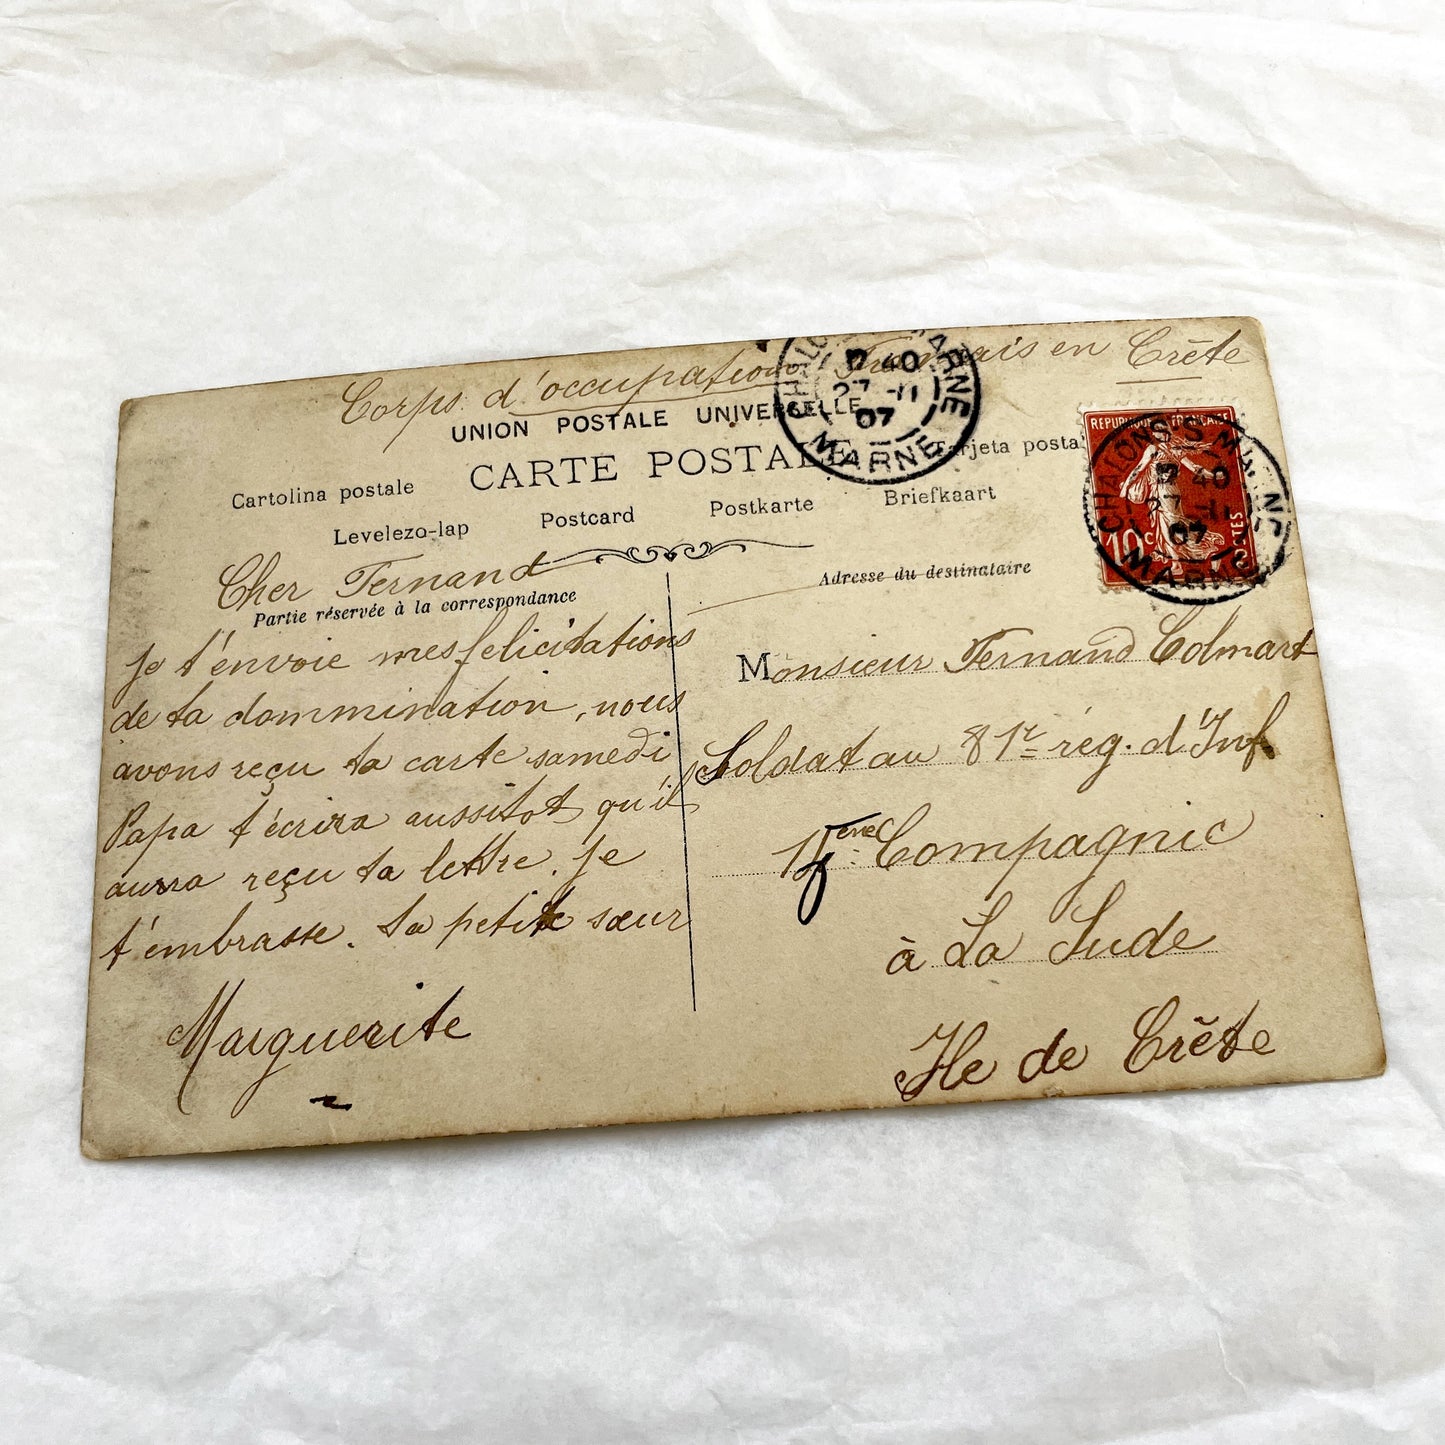 Corps d'occupation Français en Crête
UNION POSTALE UNIVERSELLE
CARTE POSTALE
Cartolina postale
Tarjeta postal
Levelezo-lap
Postcard
Postkarte
Briefkaart
REPUBLIQUE FRANÇAISE
10 c
POSTES
CHALONS S MARNE
40
27 -11
07
MARNE
CHALONS S MARNE
40
27 -11
07
MARNE
Cher Fernand
Partie réservée à la correspondance
Je t'envoie mes felicitations
de ta dommination, nous
avons reçu ta carte samedi
Papa t'écrira aussitot qu'il
aura reçu ta lettre. Je
t'embrasse. Ta petite sœur
Marguerite
Adresse du destinataire
Monsieur Fernand Colmart
Soldat au 81e rég. d'Inf
Compagnie
à La Sude
Ile de Crête